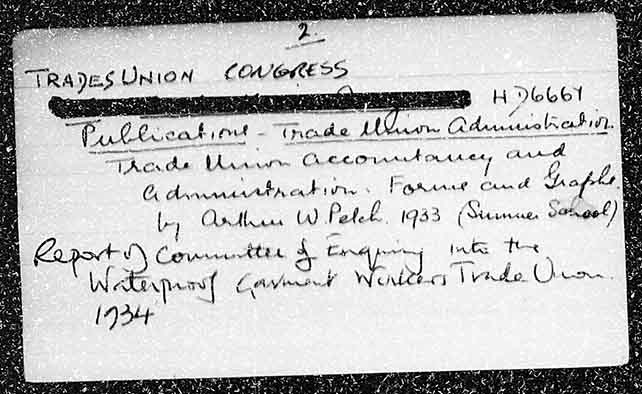 2.
TRADES UNION CONGRESS
HD6664
Publications - Trade Union Administration
Trade Union Accountancy and
Administration. Forms and Graphs
by Arthur W Petch. 1933 (Summer School)
Report of Committee of Enquiry into the
Waterproof Garment Workers Trade Union.
1934